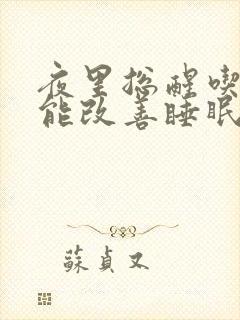 夜里總醒喫
能改善睡眠
蘇貞又